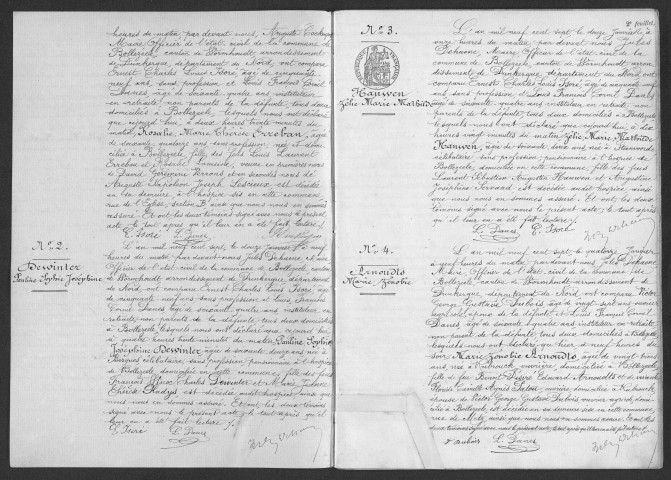 heures du matin, par devant nous, Auguste
Maire Officier de l'état civil de la commune de
Bollezeele, canton de Wormhoudt, arrondissement
de Dunkerque, département du Nord, ont comparu
Ernest Charles Louis Isoré, âgé de cinquante
neuf ans, sans profession, et Louis François Cornil
Danes, âgé de soixante quatre ans, instituteur
en retraite, non parents de la défunte, tous deux
domiciliés à Bollezeele, lesquels nous ont déclaré
que ce jourd'hui à deux heures trente minutes du
matin, Rosalie, Marie Thérèse Erreban, âgée
de soixante quatorze ans, sans profession, née et domi-
ciliée à Bollezeele, fille des feus Louis Laurent
Erreban et Rosalie, veuve en premières noces
de David et en secondes noces de
Auguste Napoléon Joseph Lescieux est décédée
en sa demeure à l'hospice sis en cette commune
rue de l'Eglise, section B, ainsi que nous nous en sommes
assuré. Et ont les deux témoins signé avec nous le présent
acte, le tout après qu'il leur en a été fait lecture.
E. Isoré L. Danes
N° 2.
Dewinter
Pauline Sophie Joséphine
L'an mil neuf cent sept, le douze Janvier, à neuf
heures du matin, par devant nous Jules Dehaene, Maire
Officier de l'état civil de la commune de Bollezeele, canton
de Wormhoudt, arrondissement de Dunkerque, département
du Nord, ont comparu Ernest Charles Louis Isoré, âgé
de cinquante neuf ans, sans profession et Louis François
Cornil Danes, âgé de soixante quatre ans, instituteur en
retraite, non parents de la défunte, tous deux domiciliés
à Bollezeele, lesquels nous ont déclaré que ce jourd'hui à
quatre heures trente minutes du matin Pauline Sophie
Joséphine Dewinter, âgée de soixante douze ans, née à
Bergues, célibataire, sans profession, pensionnaire à l'hospice
de Bollezeele, domiciliée en cette commune, fille des feus
François Charles Dewinter et Marie Julienne
Thérèse est décédée audit hospice, ainsi que
nous nous en sommes assuré. Et ont les deux témoins
signé avec nous le présent acte, le tout après qu'il
leur en a été fait lecture.
E. Isoré L. Danes
2e feuillet
N° 3.
Hauwen
Zélie Marie Mathilde
L'an mil neuf cent sept, le douze Janvier, à
onze heures du matin, par devant nous Jules
Dehaene, Maire, Officier de l'état civil de la com-
mune de Bollezeele, canton de Wormhoudt, arrondissement
de Dunkerque, département du Nord, ont
comparu Ernest Charles Louis Isoré, âgé de cinquante neuf
ans, sans profession et Louis François Cornil Danes,
âgé de soixante quatre ans, instituteur en retraite, non
parents de la défunte, tous deux domiciliés à Bollezeele,
lesquels nous ont déclaré que ce jourd'hui à dix
heures vingt minutes du matin, Zélie, Marie Mathilde
Hauwen, âgée de soixante deux ans, née à Steenvoorde,
célibataire, sans profession, pensionnaire à l'hospice de
Bollezeele, domiciliée en cette commune, fille des feus
Laurent Sébastien Augustin Hauwen et Augustine
Joséphine Levaard est décédée audit hospice, ainsi
que nous nous en sommes assuré. Et ont les deux
témoins signé avec nous le présent acte, le tout après
qu'il leur en a été fait lecture.
L. Danes E. Isoré
N° 4.
Arnoudts
Marie Zénobie
L'an mil neuf cent sept, le quatorze Janvier
à neuf heures du matin, par devant nous Jules Dehaene
Maire, Officier de l'état civil de la commune de
Bollezeele, canton de Wormhoudt, arrondissement de
Dunkerque, département du Nord, ont comparu Victor
George Gustave Dubois, âgé de vingt sept ans, ouvrier
agricole, époux de la défunte et Louis François Cornil
Danes, âgé de soixante quatre ans, instituteur en retraite,
non parent de la défunte, tous deux domiciliés à Bollezeele,
lesquels nous ont déclaré que hier à heures du
soir Marie Zénobie Arnoudts, âgée de vingt trois
ans, née à Rubrouck, ouvrière, domiciliée à Bollezeele,
fille de feu Benoit Désiré Edouard Arnoudts et de vivante
Florida Camille Agnès, ouvrière, domiciliée à Rubrouck,
épouse de Victor George Gustave Dubois, ouvrier agricole, domi-
cilié à Bollezeele, est décédée en sa demeure sise en cette commune,
rue de Metz, ainsi que nous nous en sommes assuré. Et ont les
deux témoins signé avec nous le présent acte, le tout après qu'il leur en a été fait lecture.
V. Dubois L. Danes